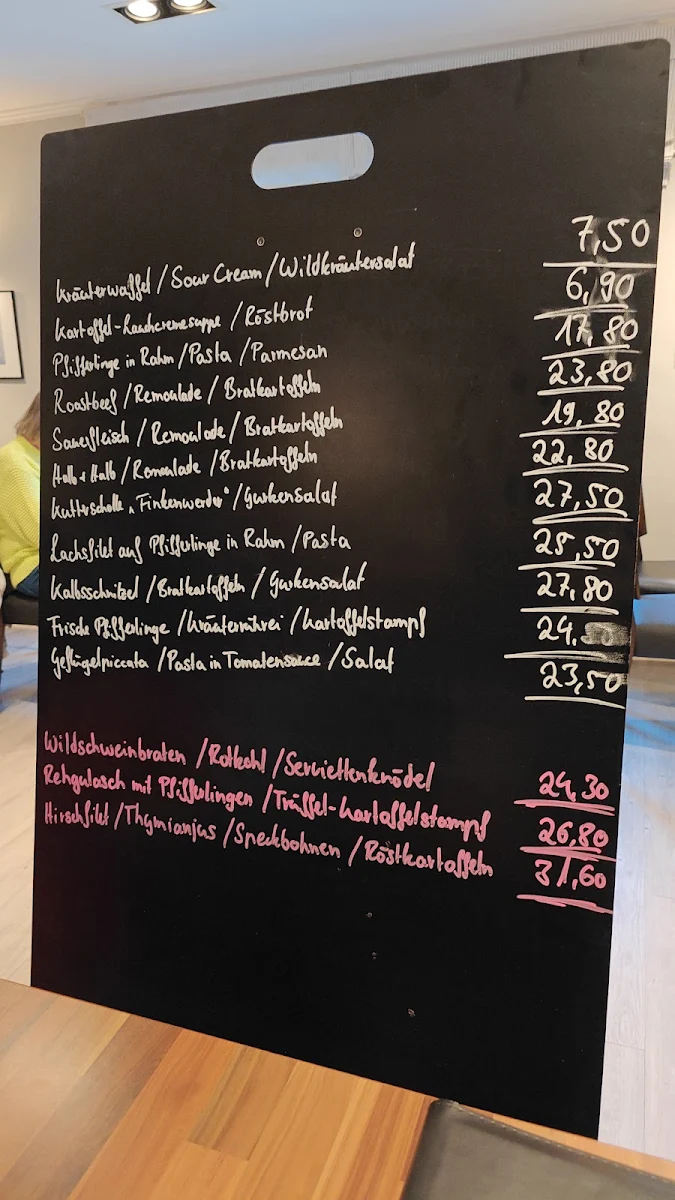 Kräuterwaffel / Sour Cream / Wildkräutersalat 7,50
Kartoffel-Rauchcremesuppe / Röstbrot 6,90
Pfifferlinge in Rahm / Pasta / Parmesan 17,80
Roastbeef / Remoulade / Bratkartoffeln 23,80
Sauerfleisch / Remoulade / Bratkartoffeln 19,80
Halb + Halb / Remoulade / Bratkartoffeln 22,80
Kutterscholle „Finkenwerder" / Gurkensalat 27,50
Lachsfilet auf Pfifferlinge in Rahm / Pasta 25,50
Kalbsschnitzel / Bratkartoffeln / Gurkensalat 27,80
Frische Pfifferlinge / Kräuterrührei / Kartoffelstampf 24,
Geflügelpiccata / Pasta in Tomatensauce / Salat 23,50
Wildschweinbraten / Rotkohl / Serviettenknödel 24,30
Rehgulasch mit Pfifferlingen / Trüffel-Kartoffelstampf 26,80
Hirschfilet / Thymianjus / Speckbohnen / Röstkartoffeln 31,60